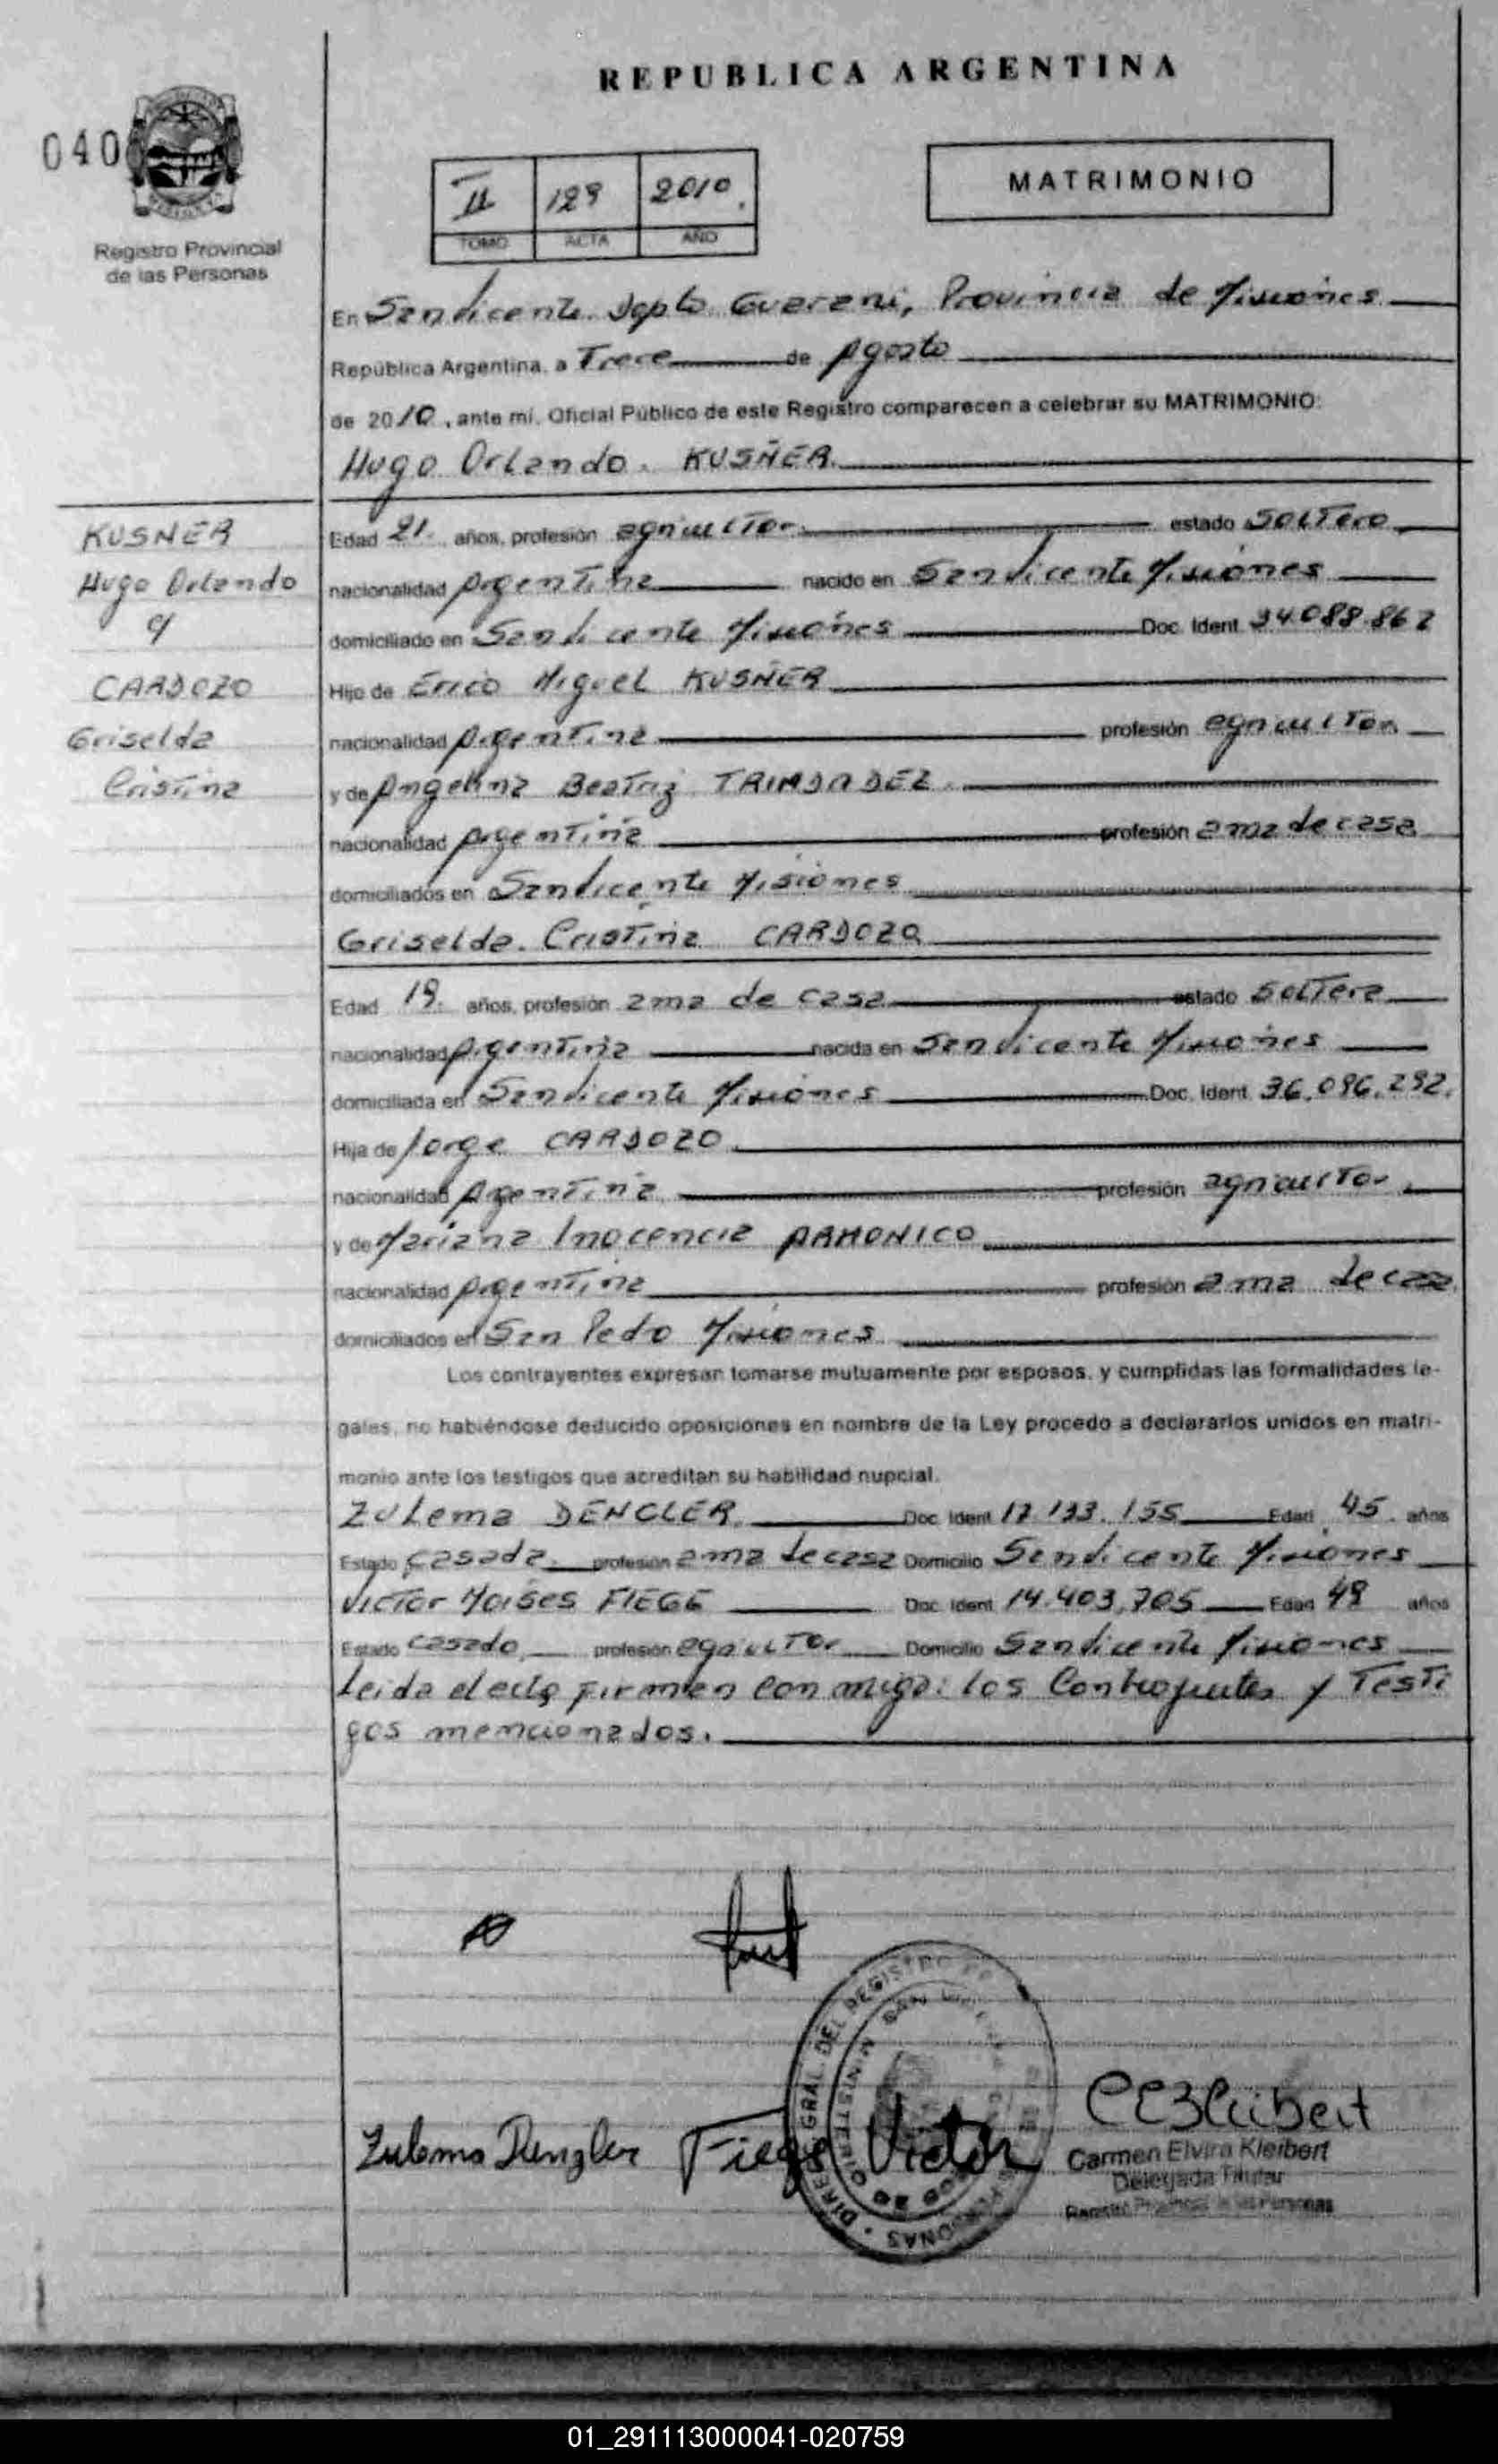 REPUBLICA ARGENTINA
040
Registro Provincial
de las Personas
II 129 2010
TOMO ACTA AÑO
MATRIMONIO
En San Vicente Dpto Guarani, Provincia de Misiones
República Argentina, a Trece de Agosto
de 2010, ante mí, Oficial Público de este Registro comparecen a celebrar su MATRIMONIO:
Hugo Orlando. KUSÑER
KUSNER
Hugo Orlando
c/
CARDOZO
Griselda
Cristina
Edad 21 años, profesión agricultor estado Soltero
nacionalidad Argentina nacido en San Vicente Misiones
domiciliado en San Vicente Misiones Doc. Ident. 34.088.862
Hijo de Erico Miguel KUSÑER
nacionalidad Argentina profesión agricultor
y de Angelina Beatriz
nacionalidad Argentina profesión ama de casa
domiciliados en San Vicente Misiones
Griselda. Cristina CARDOZO
Edad 19 años, profesión ama de casa estado Soltera
nacionalidad Argentina nacida en San Vicente Misiones
domiciliada en San Vicente Misiones Doc. Ident. 36.096.292.
Hija de Jorge CARDOZO
nacionalidad Argentina profesión agricultor
y de Mariana Inocencia ARMONICO
nacionalidad Argentina profesión ama de casa
domiciliados en San Pedo Misiones
Los contrayentes expresan tomarse mutuamente por esposos, y cumplidas las formalidades le-
gales, no habiéndose deducido oposiciones en nombre de la Ley procedo a declararlos unidos en matri-
monio ante los testigos que acreditan su habilidad nupcial.
Zulema DENGLER Doc. Ident. 17.133.155 Edad 45 años
Estado Casada profesión ama de casa Domicilio San Vicente Misiones
Victor Moises FIEGE Doc. Ident. 14.403.705 Edad 49 años
Estado Casado profesión agricultor Domicilio San Vicente Misiones
Leida el acta firman con migo: los Contrayentes y Testi
gos mencionados.
Zulema Dengler Fiege Victor
CEKleibert
Carmen Elvira Kleibert
Delegada Titular
Registro Provincial de las Personas
01_291113000041-020759